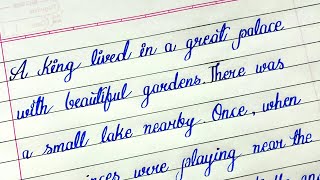 A king lived in a great palace
with beautiful gardens. There was
a small lake nearby. Once, when
were playing near the